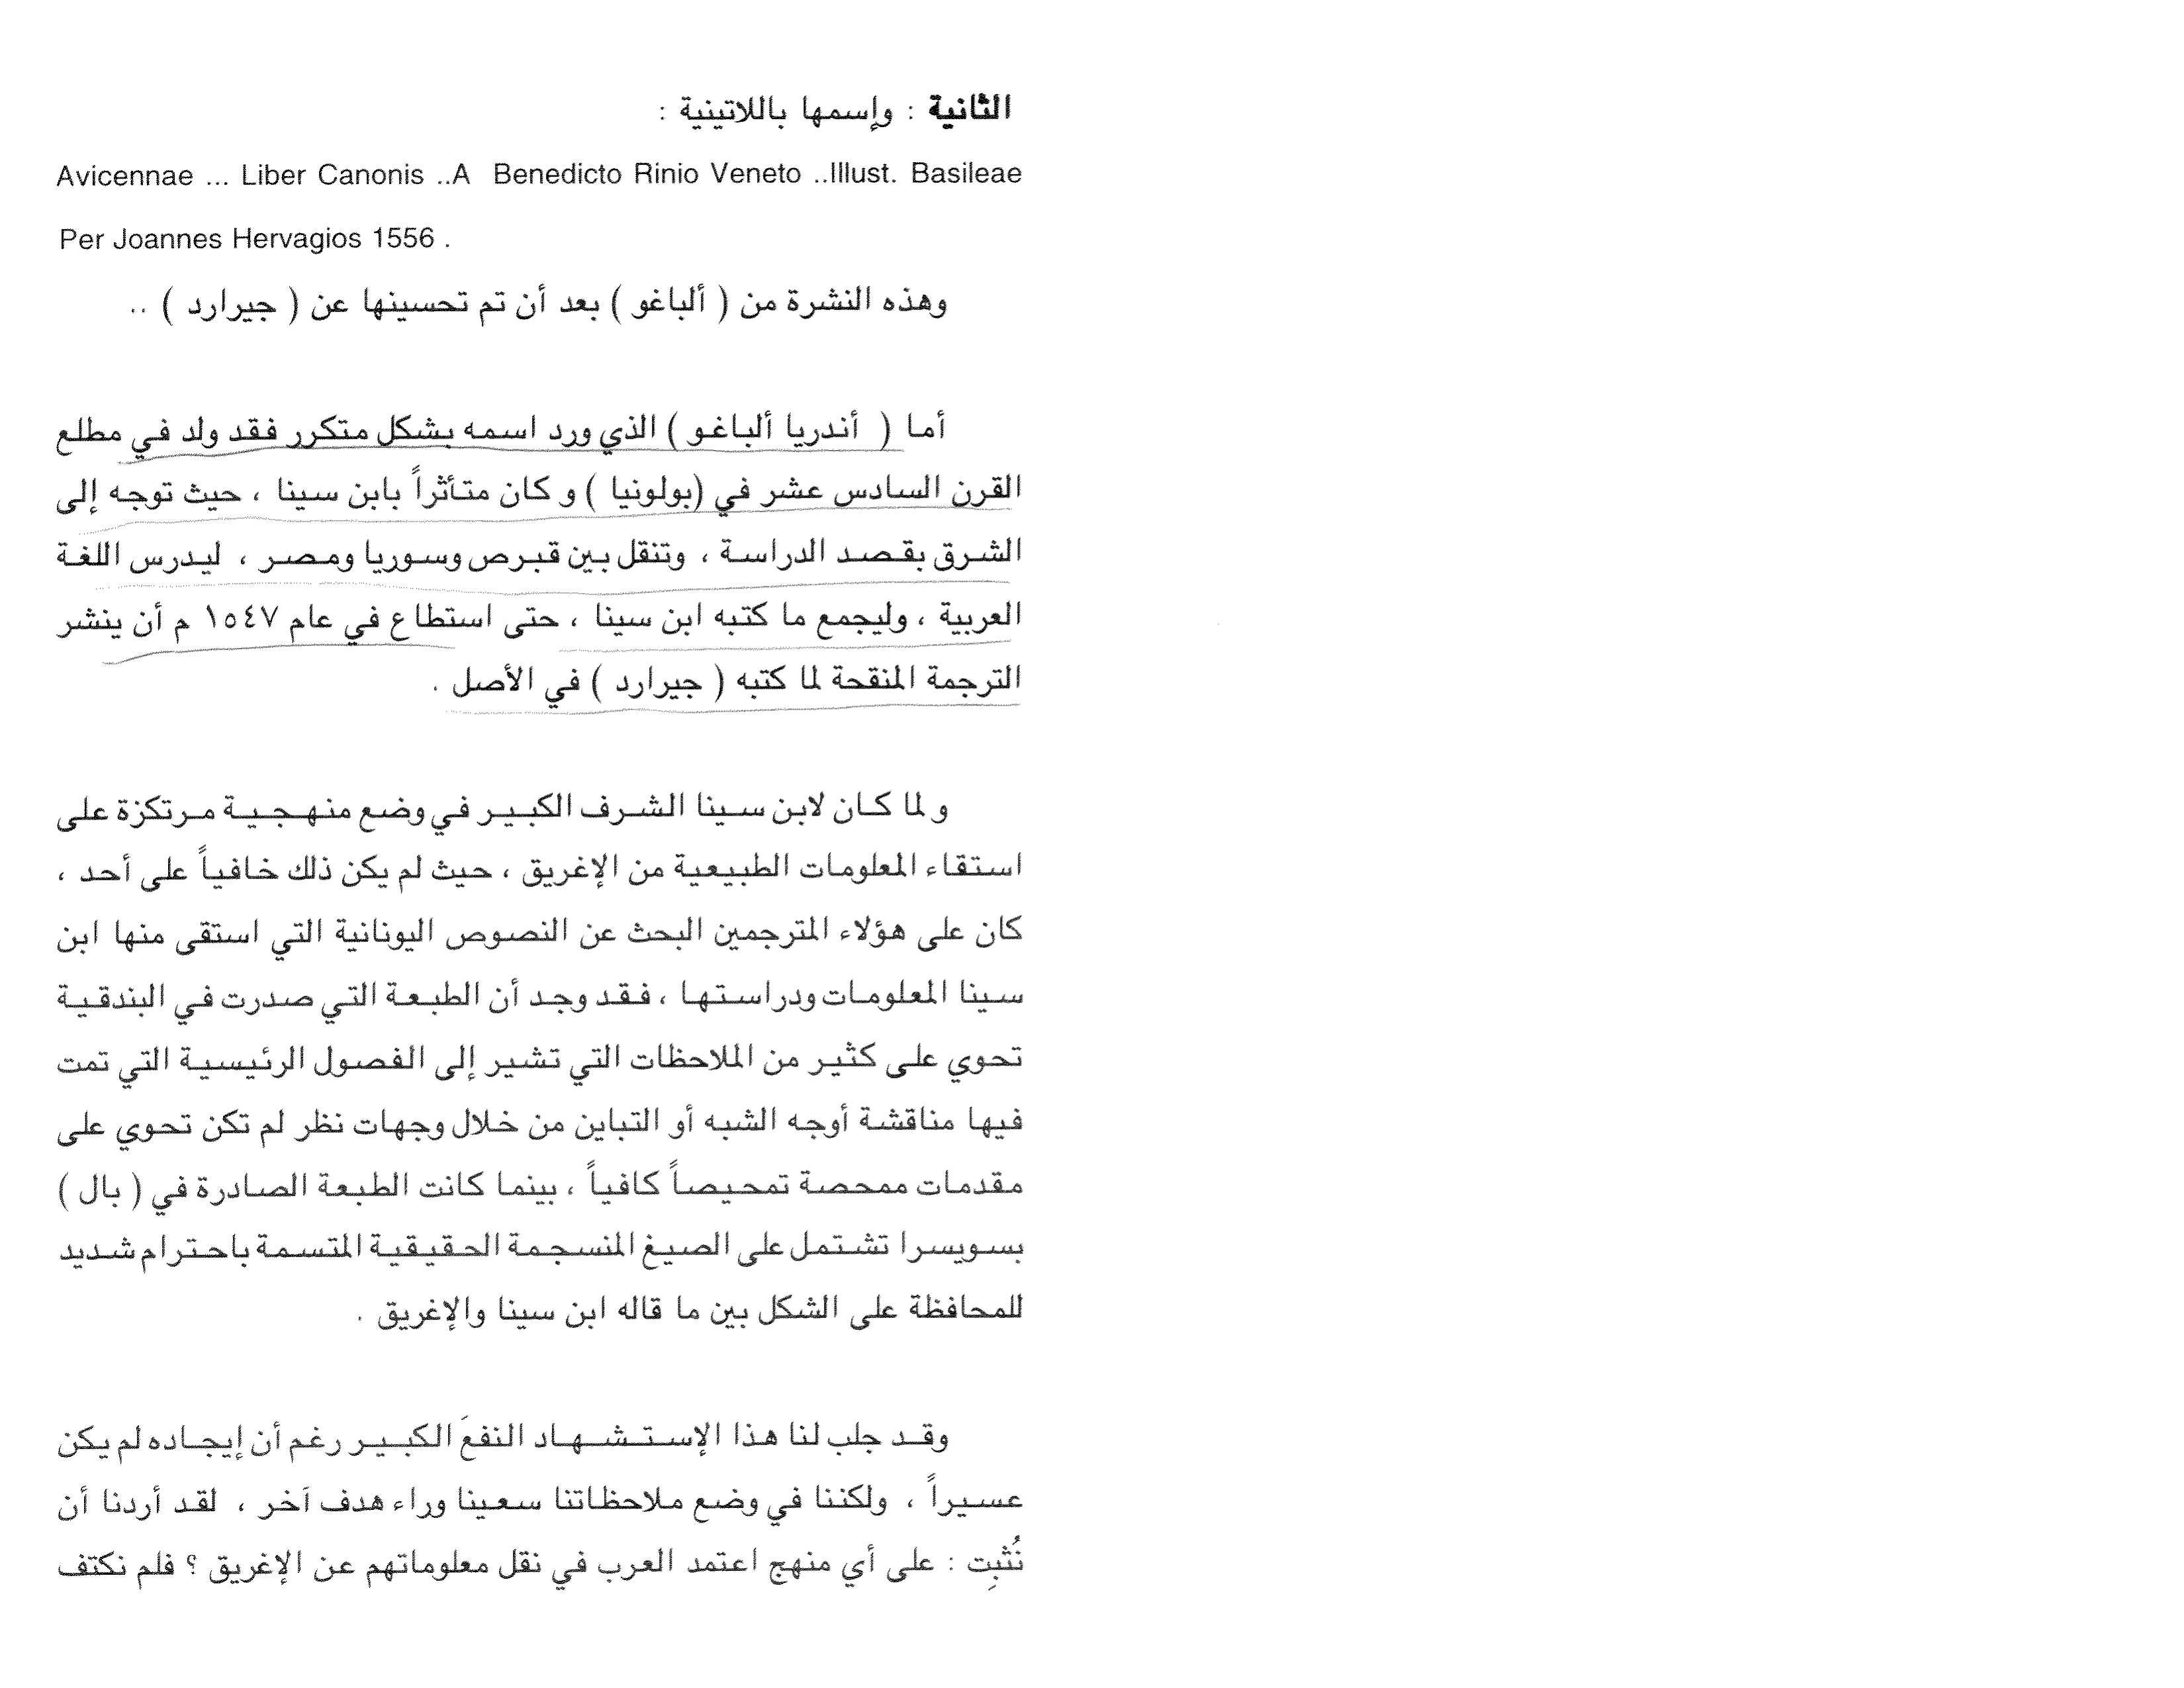 الثانية : وإسمها باللاتينية :
Avicennae ... Liber Canonis ..A Benedicto Rinio Veneto ..Illust. Basileae
Per Joannes Hervagios 1556 .
وهذه النشرة من ( ألباغو ) بعد أن تم تحسينها عن ( جيرارد ) ..
أما ( أندريا ألباغو ) الذي ورد اسمه بشكل متكرر فقد ولد في مطلع
القرن السادس عشر في (بولونيا ) و كان متأثراً بابن سينا ، حيث توجه إلى
الشرق بقصد الدراسة ، وتنقل بين قبرص وسوريا ومصر ، ليدرس اللغة
العربية ، وليجمع ما كتبه ابن سينا ، حتى استطاع في عام ١٥٤٧ م أن ينشر
الترجمة المنقحة لما كتبه ( جيرارد ) في الأصل .
و لما كان لابن سينا الشرف الكبير في وضع منهجية مرتكزة على
استقاء المعلومات الطبيعية من الإغريق ، حيث لم يكن ذلك خافياً على أحد ،
كان على هؤلاء المترجمين البحث عن النصوص اليونانية التي استقى منها ابن
سينا المعلومات ودراستها ، فقد وجد أن الطبعة التي صدرت في البندقية
تحوي على كثير من الملاحظات التي تشير إلى الفصول الرئيسية التي تمت
فيها مناقشة أوجه الشبه أو التباين من خلال وجهات نظر لم تكن تحوي على
مقدمات ممحصة تمحيصاً كافياً ، بينما كانت الطبعة الصادرة في ( بال )
بسويسرا تشتمل على الصيغ المنسجمة الحقيقية المتسمة باحترام شديد
للمحافظة على الشكل بين ما قاله ابن سينا والإغريق .
وقد جلب لنا هذا الإستشهاد النفعَ الكبير رغم أن إيجاده لم يكن
عسيراً ، ولكننا في وضع ملاحظاتنا سعينا وراء هدف آخر ، لقد أردنا أن
نُثبِت : على أي منهج اعتمد العرب في نقل معلوماتهم عن الإغريق ؟ فلم نكتف